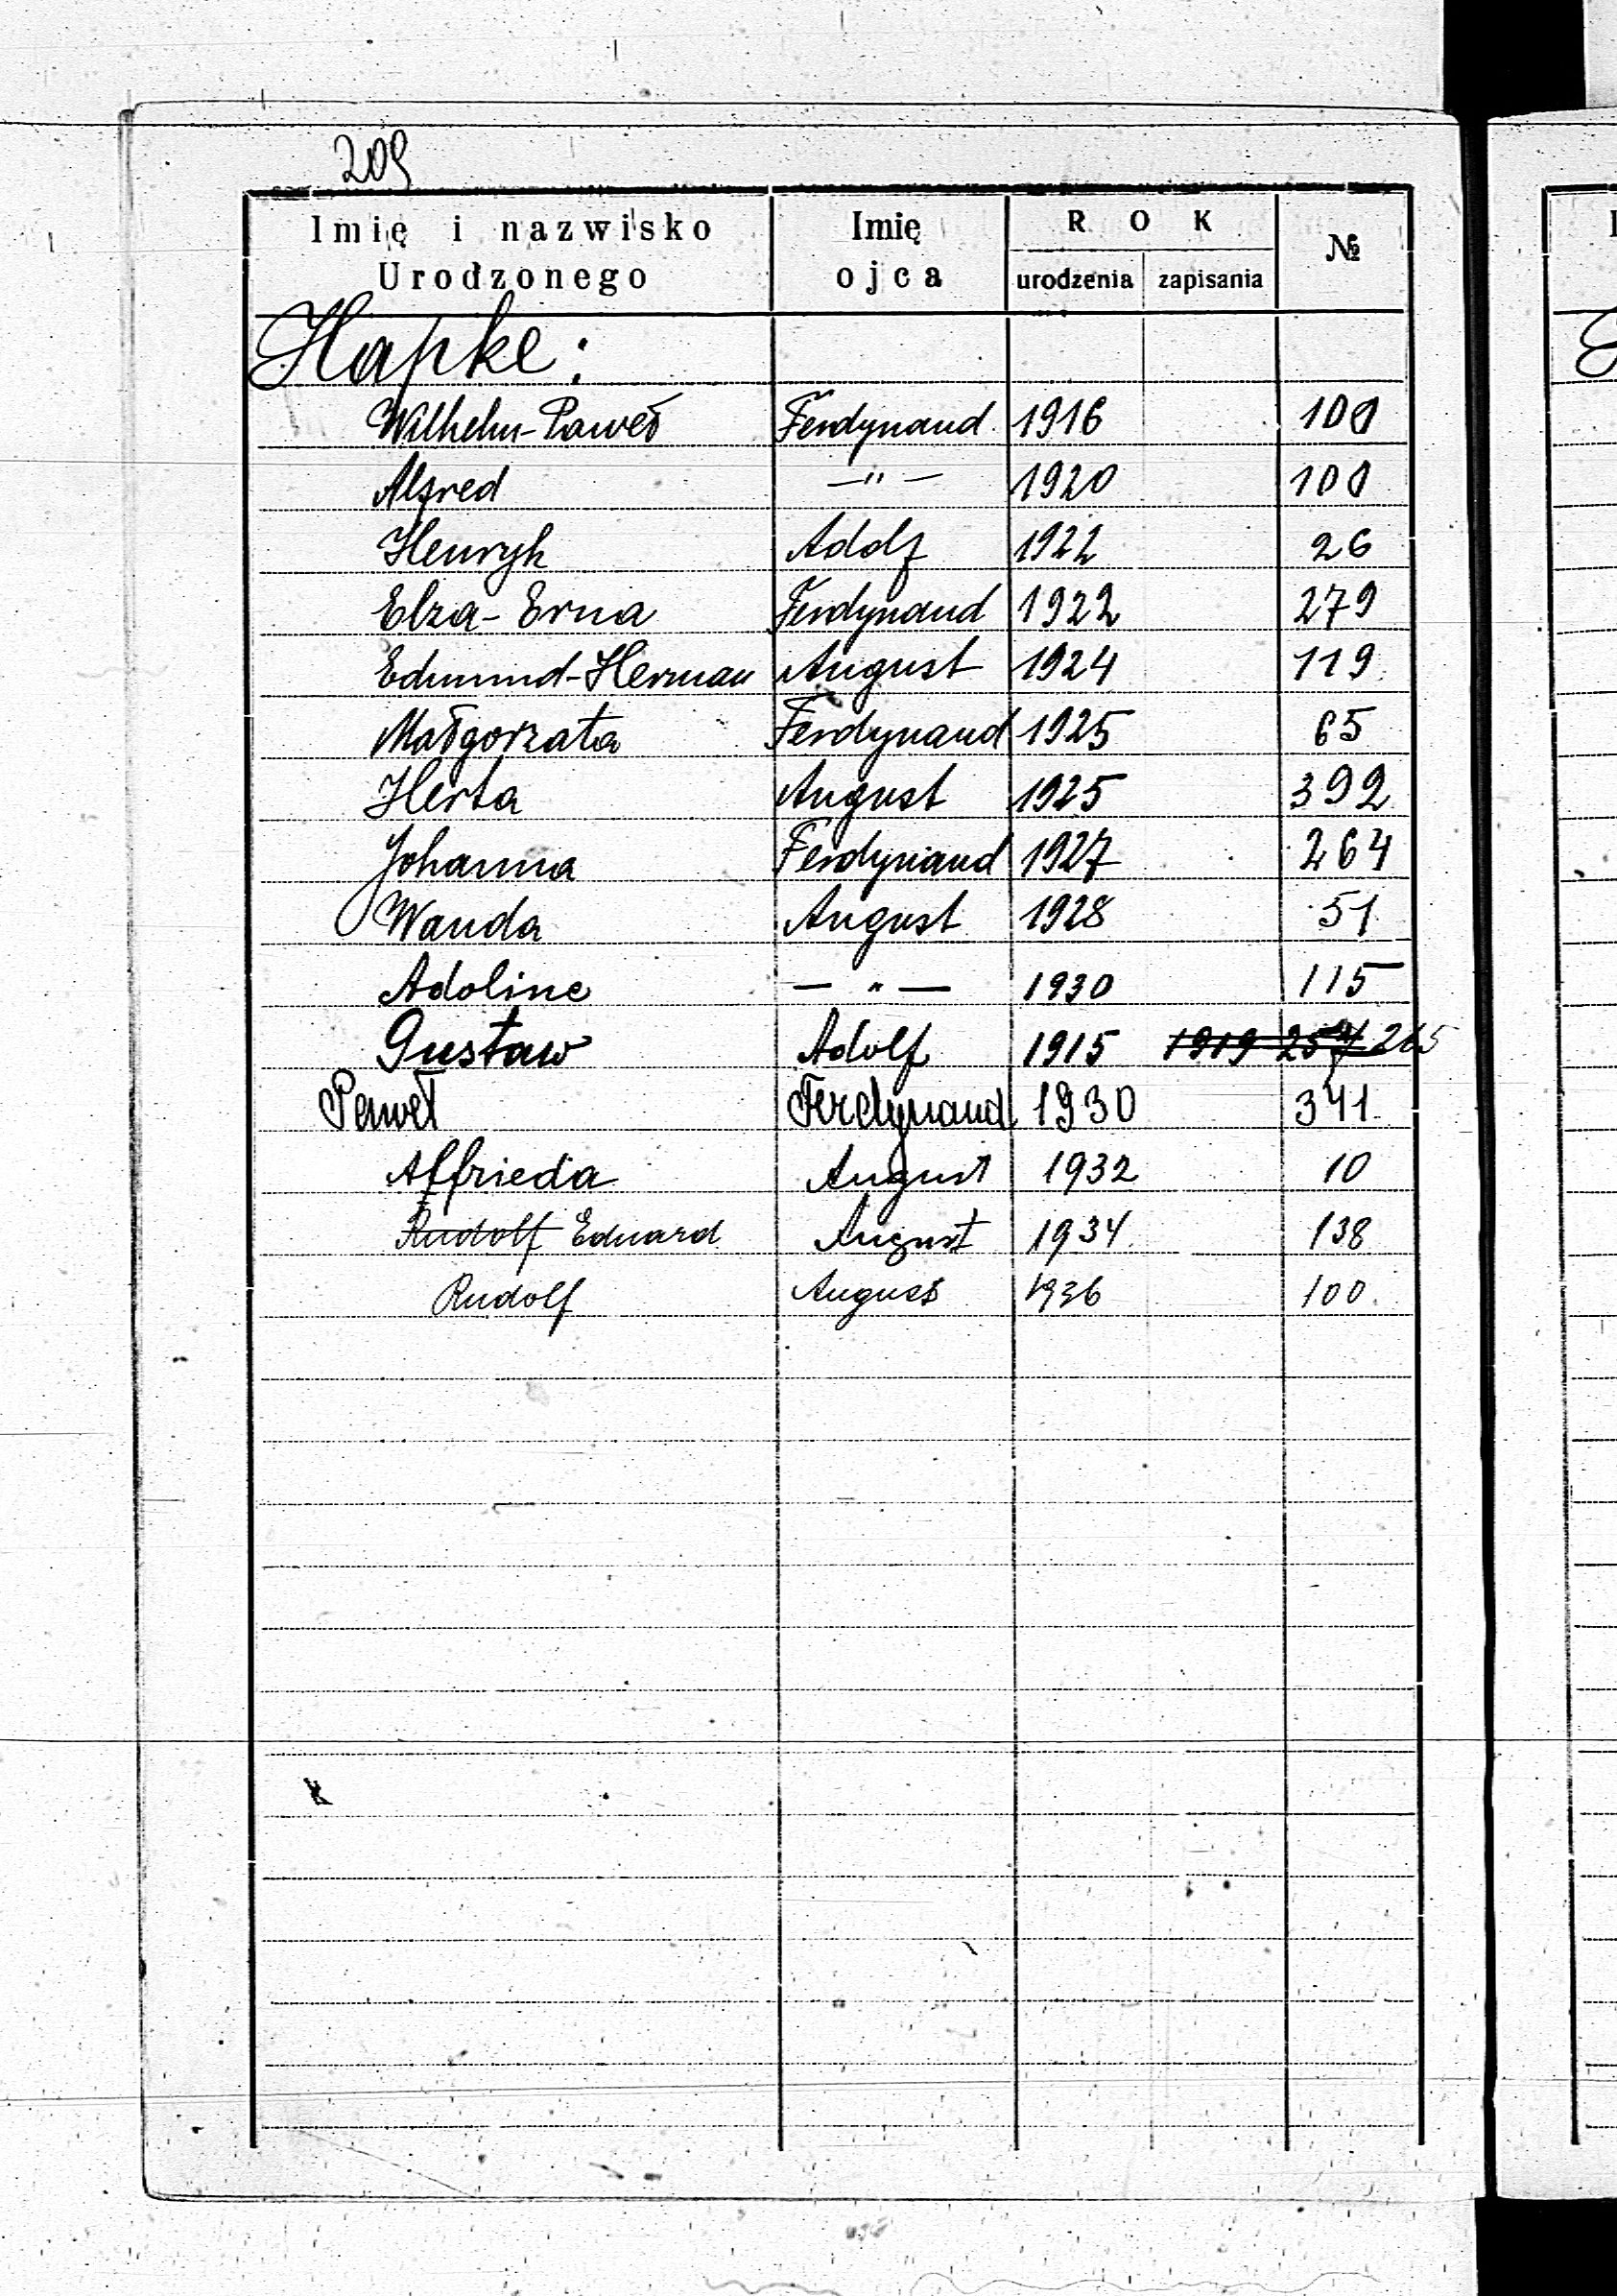 209
Imię i nazwisko Urodzonego | Imię ojca | ROK urodzenia | zapisania | №
Hapke:
Wilhelm-Paweł Ferdynand 1916 100
Alfred —"— 1920 100
Henryk Adolf 1922 26
Elza-Erna Ferdynand 1922 279
Edmund-Herman August 1924 119
Małgorzata Ferdynand 1925 65
Herta August 1925 392
Johanna Ferdynand 1927 264
Wanda August 1928 51
Adoline —"— 1930 115
Gustaw Adolf 1915 1919 257 265
Paweł Ferdynand 1930 341
Alfrieda August 1932 10
Rudolf Eduard August 1934 138
Rudolf August 1936 100